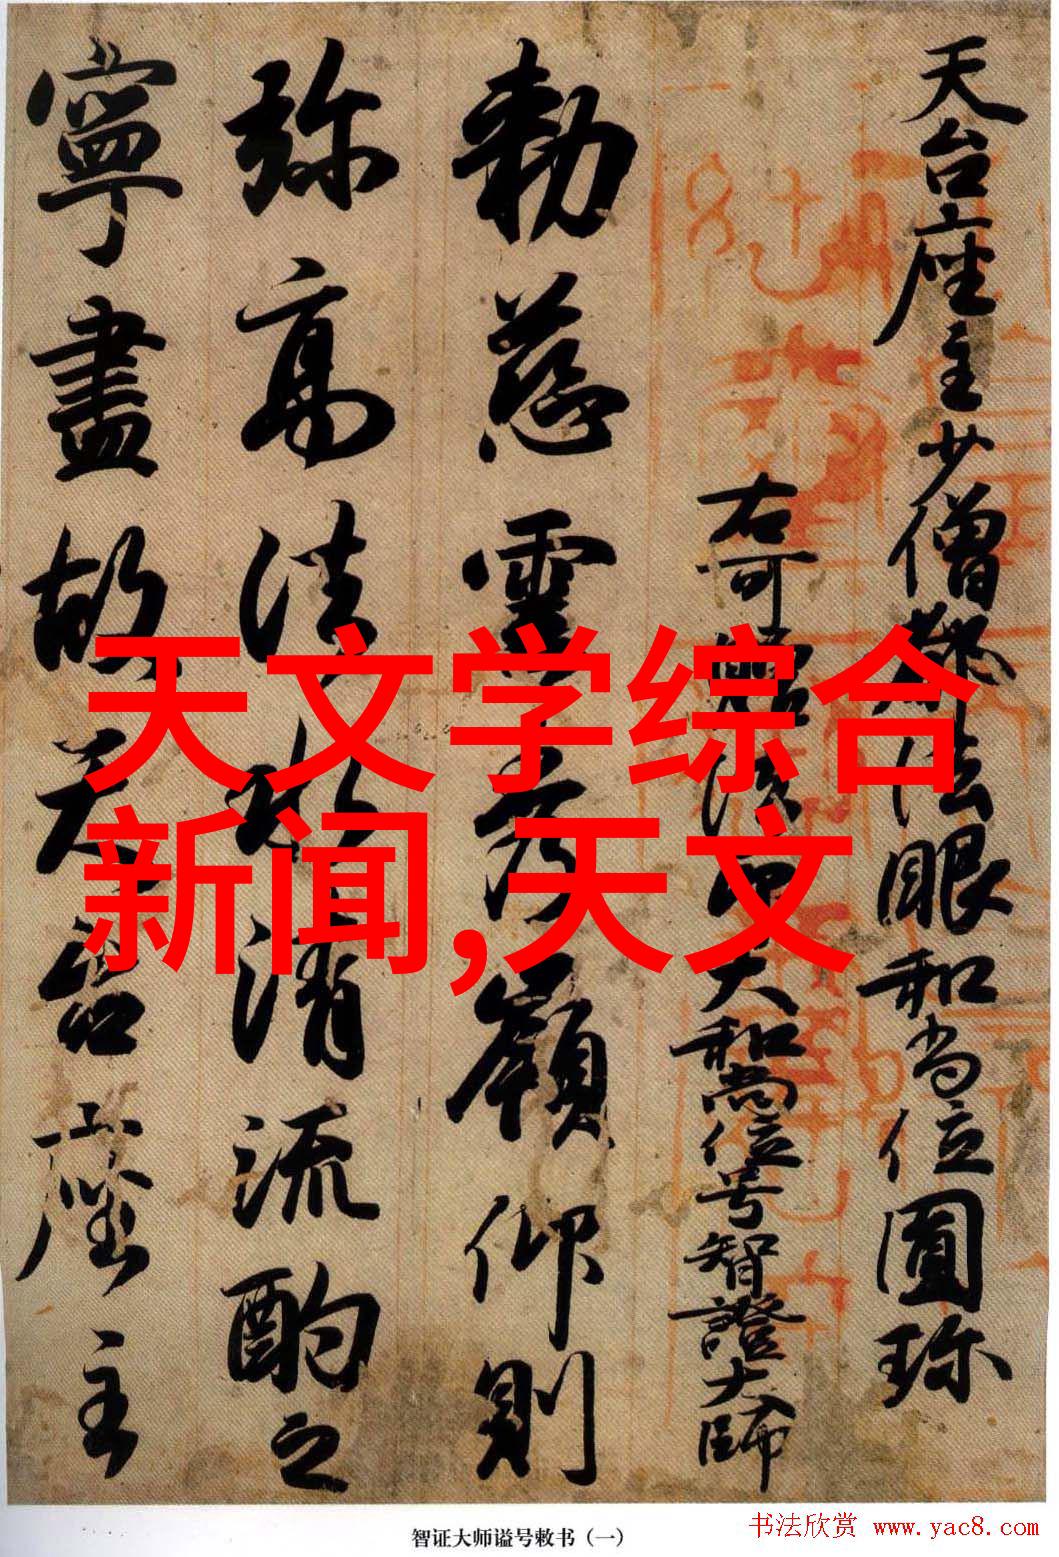 天台座主少僧都法眼和尚位圓珎
右可贈法印大和尚位号智證大師
勅慈雲秀嶺仰則
弥高法水清流酌之
寧盡故天台座主
天文学综合
新闻,天文
智证大师谥号敕书（一）
书法欣赏 www.yac8.com